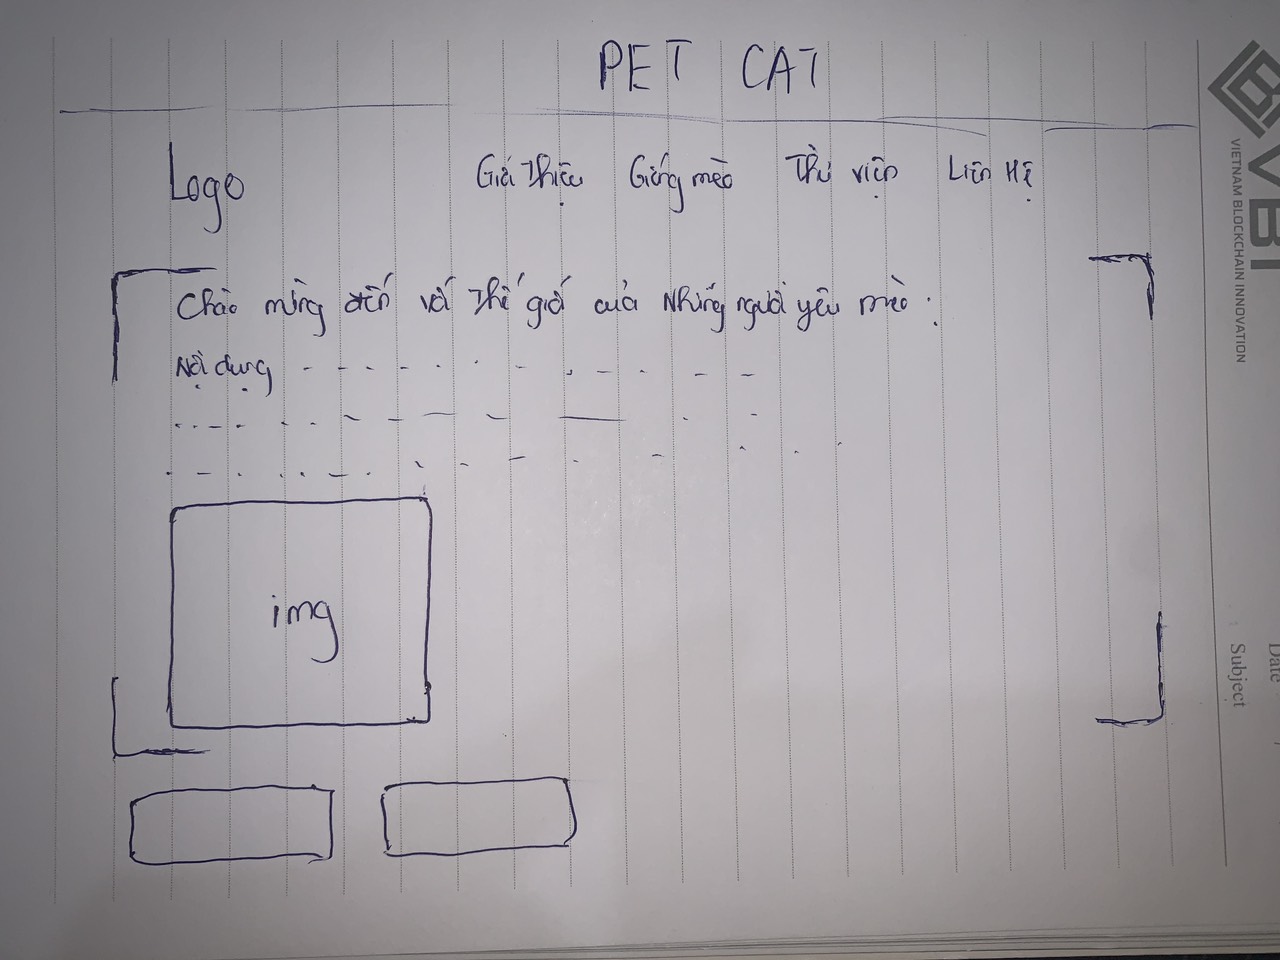 PET CAT
Logo Giới Thiệu Giống mèo Thư viện Liên Hệ
Chào mừng đến với Thế giới của Những người yêu mèo.
Nội dung
img
VBI
VIETNAM BLOCKCHAIN INNOVATION
Date
Subject